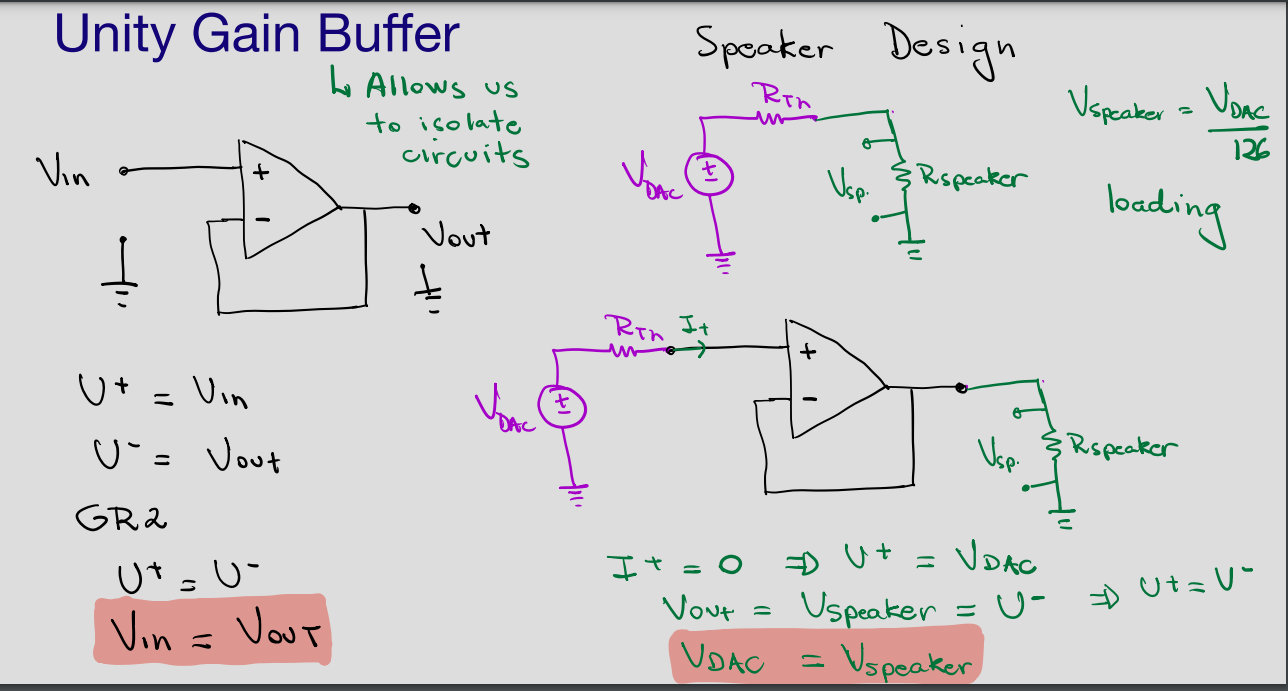 Unity Gain Buffer
↳ Allows us
to isolate
circuits
Vin
+
-
Vout
U+ = Vin
U- = Vout
GR2
U+ = U-
Vin = VOUT
Speaker Design
RTh
VDAC
±
Vsp.
Rspeaker
Vspeaker = VDAC / 126
loading
RTh
I+
VDAC
±
+
-
Vsp.
Rspeaker
I+ = 0 ⇒ U+ = VDAC
Vout = Vspeaker = U- ⇒ U+ = U-
VDAC = Vspeaker